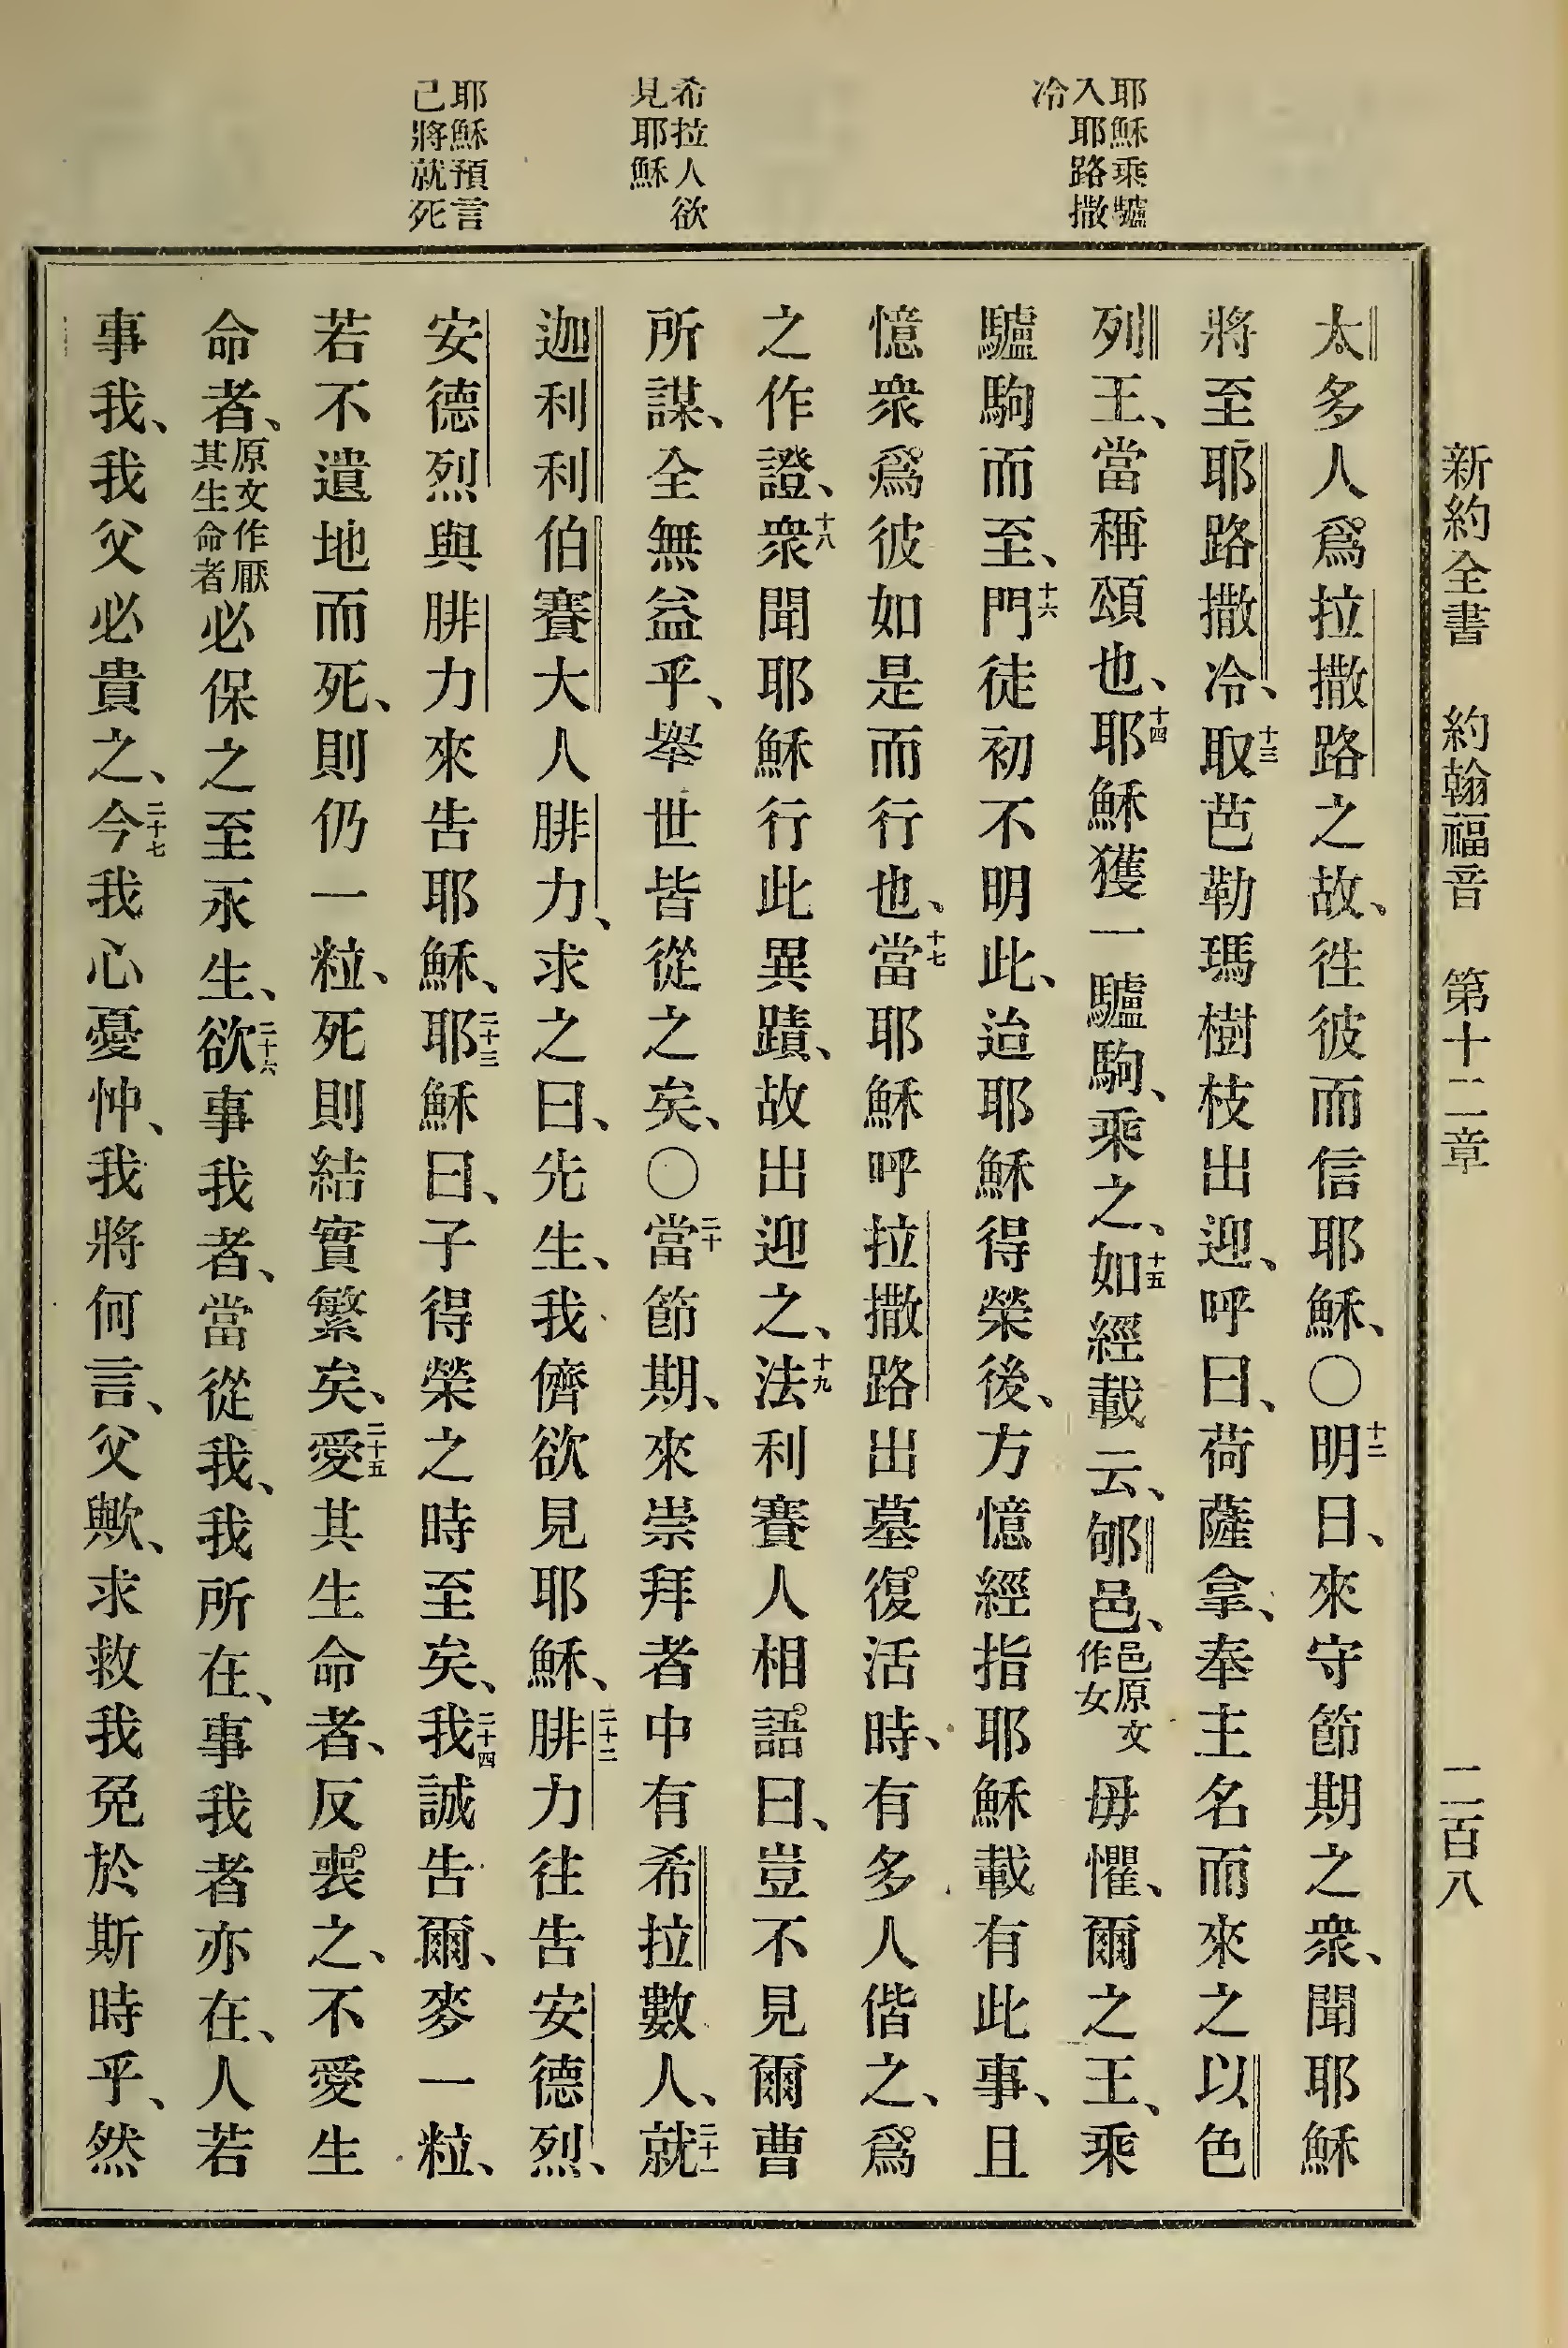 新約全書 約翰福音 第十二章 二百八
耶穌乘驢
入耶路撒
冷
希拉人欲
見耶穌
耶穌預言
己將就死
太多人爲拉撒路之故、徃彼而信耶穌、〇十二明日、來守節期之衆、聞耶穌
將至耶路撒冷、十三取芭勒瑪樹枝出迎、呼曰、荷薩拿、奉主名而來之以色
列王、當稱頌也、十四耶穌獲一驢駒、乘之、十五如經載云、郇邑、邑原文作女毋懼、爾之王、乘
驢駒而至、十六門徒初不明此、迨耶穌得榮後、方憶經指耶穌載有此事、且
憶衆爲彼如是而行也、十七當耶穌呼拉撒路出墓復活時、有多人偕之、爲
之作證、十八衆聞耶穌行此異蹟、故出迎之、十九法利賽人相語曰、豈不見爾曹
所謀、全無益乎、舉世皆從之矣、〇二十當節期、來崇拜者中有希拉數人、二十一就
迦利利伯賽大人腓力、求之曰、先生、我儕欲見耶穌、二十二腓力往告安德烈、
安德烈與腓力來告耶穌、二十三耶穌曰、子得榮之時至矣、二十四我誠告爾、麥一粒、
若不遺地而死、則仍一粒、死則結實繁矣、二十五愛其生命者、反喪之、不愛生
命者、原文作厭其生命者必保之至永生、二十六欲事我者、當從我、我所在、事我者亦在、人若
事我、我父必貴之、二十七今我心憂忡、我將何言、父歟、求救我免於斯時乎、然